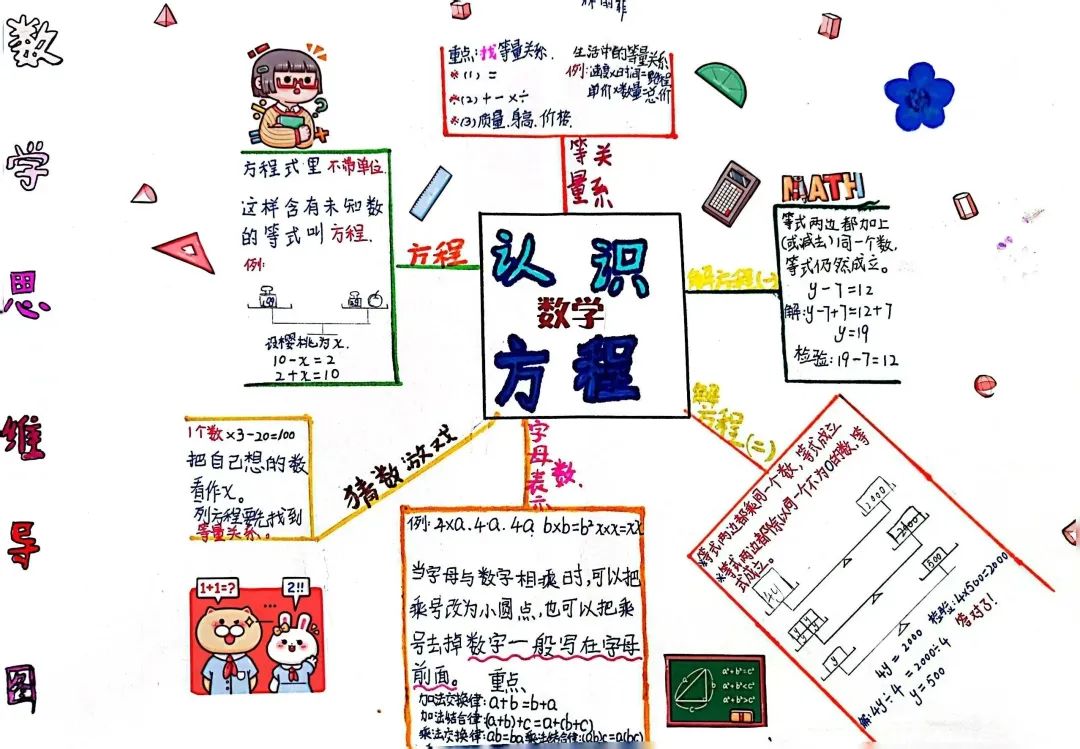 数学思维导图
重点:找等量关系.
※(1) =
※(2)+-×÷
※(3)质量.身高.价格.
生活中的等量关系
例:速度×时间=路程
单价×数量=总价
等量关系
方程式里 不带单位.
这样含有未知数
的等式叫 方程.
例:
设樱桃为x.
10-x=2
2+x=10
方程
认识
数学
方程
解方程(一)
MATH
等式两边都加上
(或减去)同一个数,
等式仍然成立。
y-7=12
解:y-7+7=12+7
y=19
检验:19-7=12
1个数×3-20=100
把自己想的数
看作x。
列方程要先找到
等量关系。
猜数游戏
字母表示数.
例:4×a.4·a.4a b×b=b² x×x=x²
当字母与数字相乘时,可以把
乘号改为小圆点,也可以把乘
号去掉数字一般写在字母
前面。
重点
加法交换律:a+b=b+a
加法结合律:(a+b)+c=a+(b+c)
乘法交换律:ab=ba乘法结合律:(ab)c=a(bc)
解方程(二)
※等式两边都乘同一个数,等式成立
※等式两边都除以同一个不为0的数,等
式成立。
2000
2000
500
y y
y y
y
4y=2000
检验:4×500=2000
答对了!
解:4y÷4=2000÷4
y=500
1+1=?
2!!
a²+b²=c²
a²+b²<c²
a²+b²>c²
a
b
c